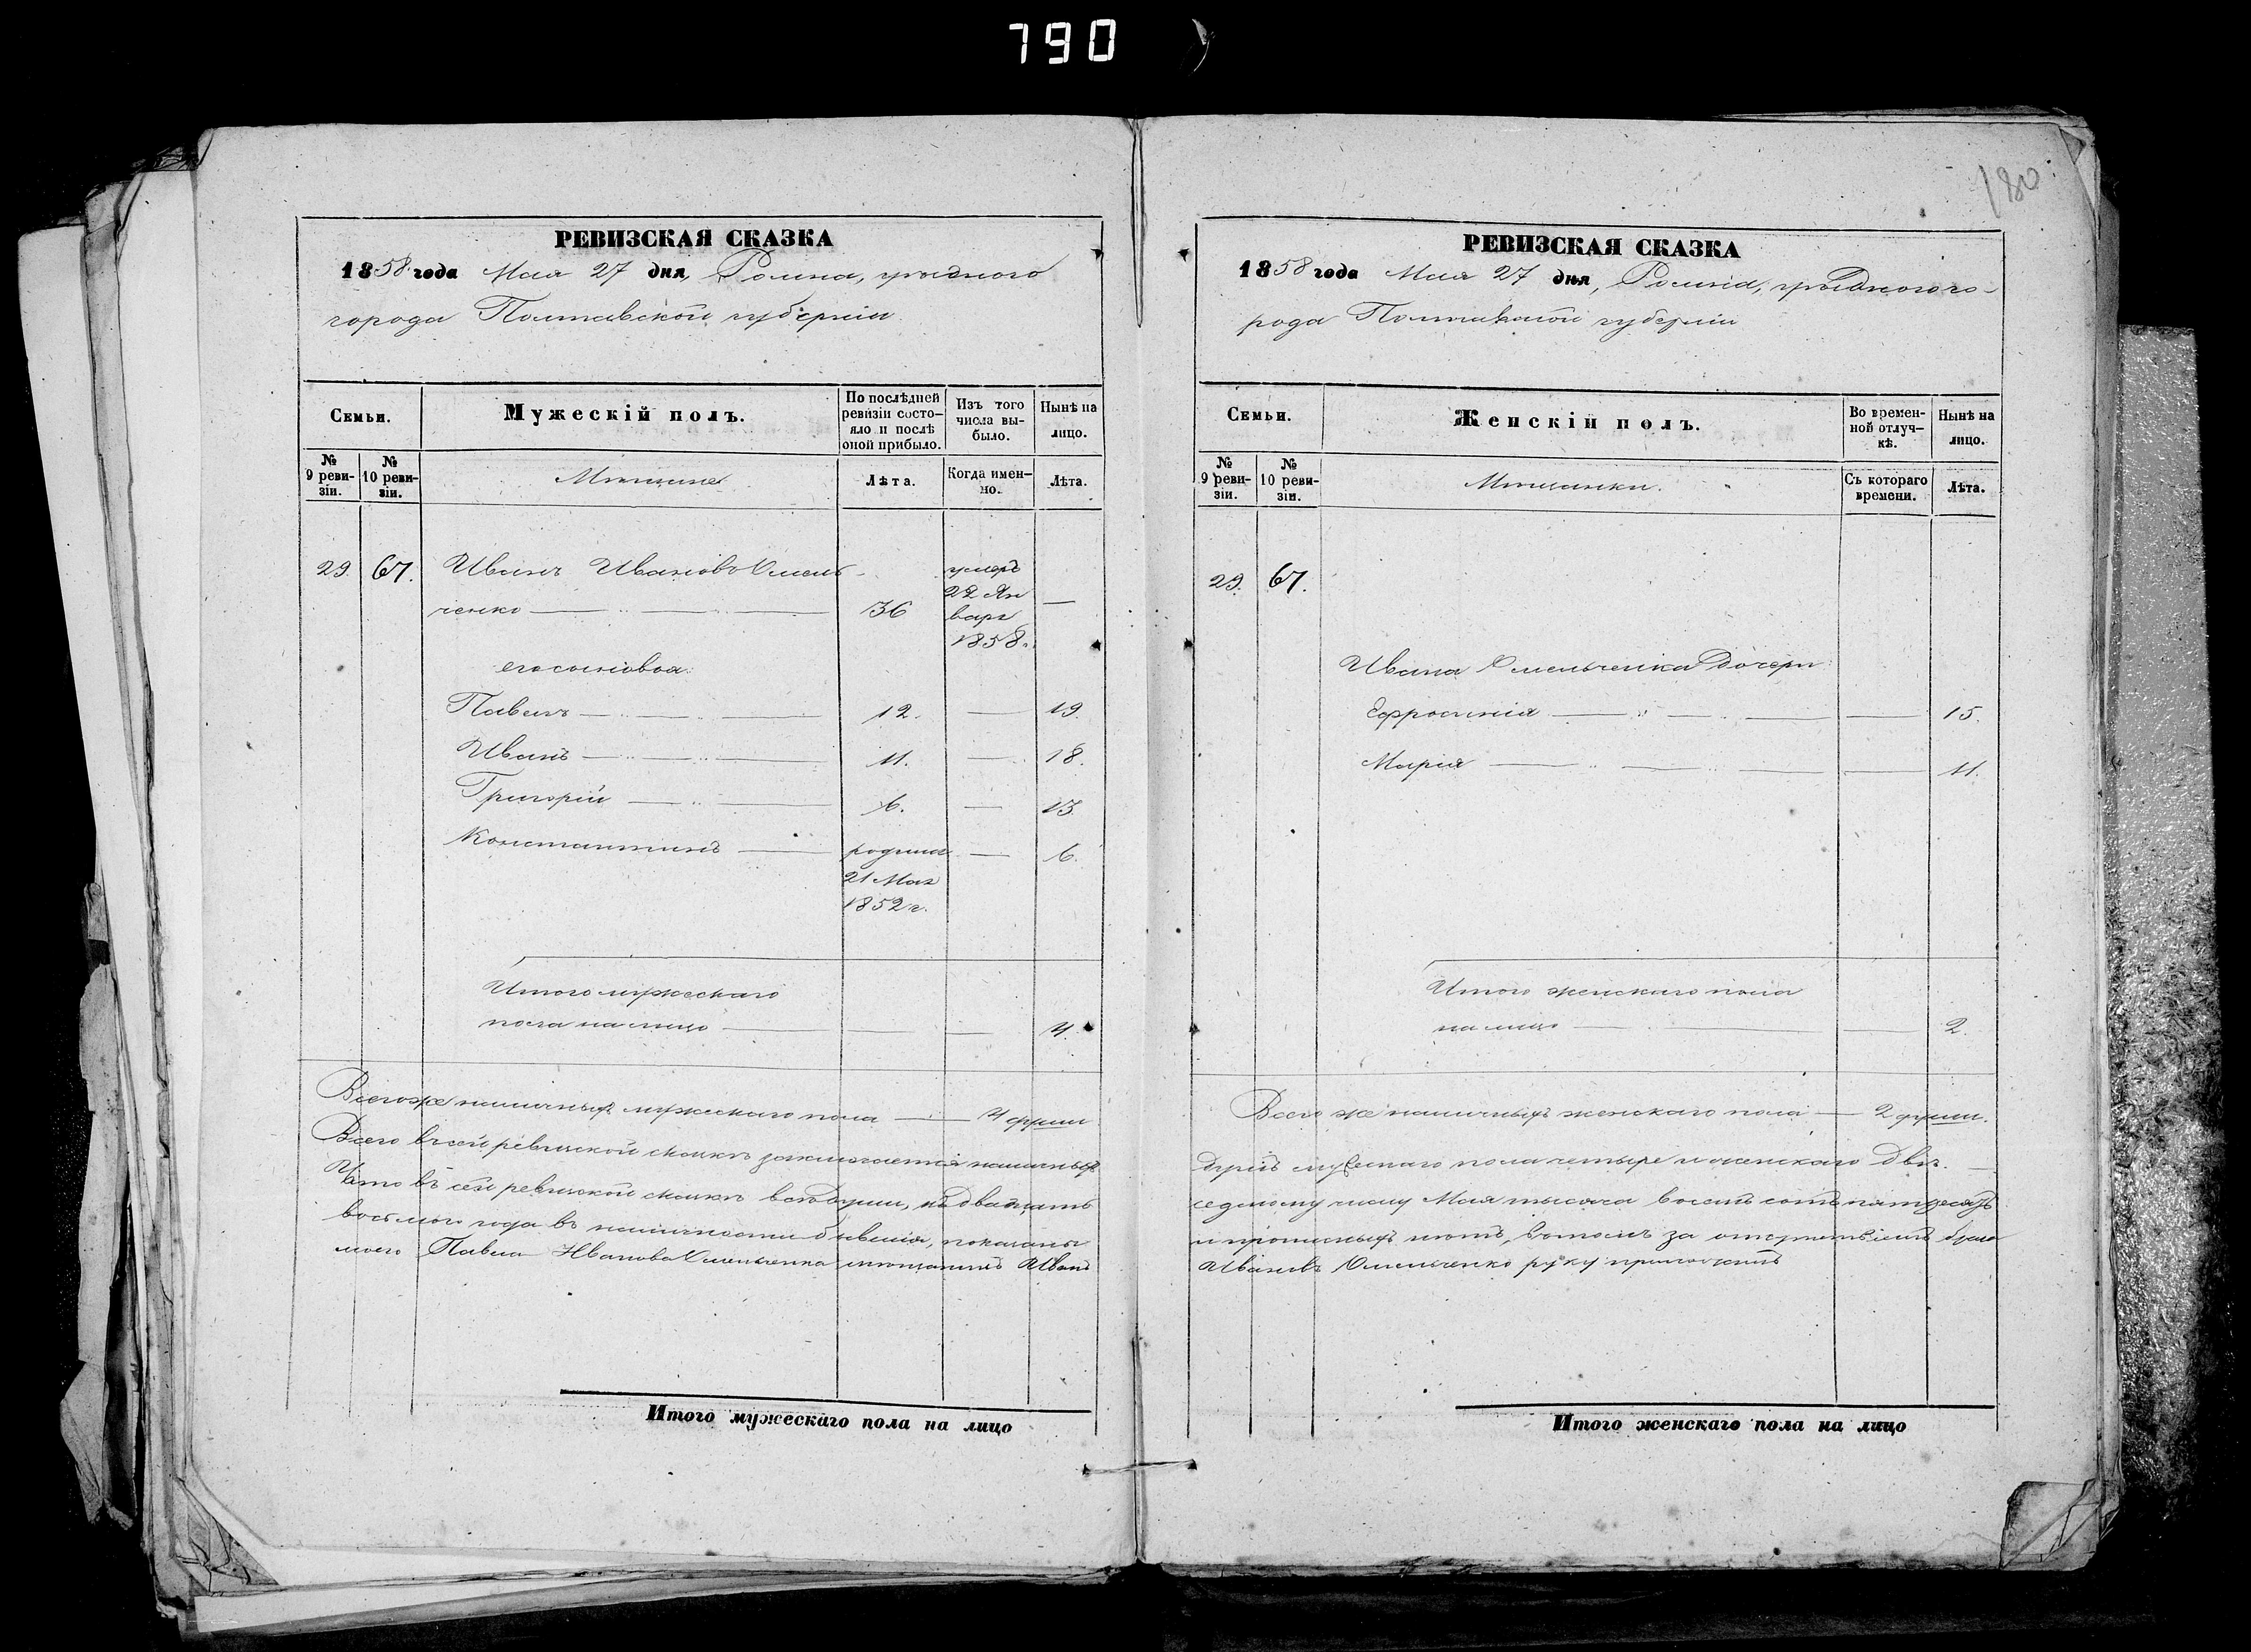 790
180
РЕВИЗСКАЯ СКАЗКА
1858 года Мая 27 дня, Ромна, уѣзднаго
города Полтавской губерніи
Семьи.
Мужескій полъ.
По послѣдней ревизіи состо-яло и послѣ оной прибыло.
Изъ того числа вы-было.
Нынѣ на лицо.
№ 9 реви-зіи.
№ 10 реви-зіи.
Мѣщане
Лѣта.
Когда имен-но.
Лѣта.
29. 67. Иванъ Ивановъ Омель-
ченко 36 умеръ 22 Ян варя 1858. —
его сыновья:
Павелъ 12. — 19.
Иванъ 11. — 18.
Григорій 6. — 13.
Константинъ родился 21 Мая 1852 г. — 6.
Итого мужескаго
пола на лицо — — 4.
Всего же наличныхъ мужескаго пола — 4 души
Всего въ сей ревизской сказкѣ заключается наличныхъ
Что въ сей ревизской сказкѣ всѣ души, къ двадцать
восьмого года въ наличности бывшія, показаны
моего Павла Иванова Омельченка мѣщанинъ Иванъ
Итого мужескаго пола на лицо
РЕВИЗСКАЯ СКАЗКА
1858 года Мая 27 дня, Ромна, уѣзднаго го-
рода Полтавской губерніи
Семьи.
Женскій полъ.
Во времен-ной отлуч-кѣ.
Нынѣ на лицо.
№ 9 реви-зіи.
№ 10 реви-зіи.
Мѣщанки.
Съ котораго времени.
Лѣта.
29. 67.
Ивана Омельченка дочери
Ефросинія — 15.
Марія — 11.
Итого женскаго пола
на лицо — 2.
Всего же наличныхъ женскаго пола — 2 души.
душъ мужескаго пола четыре и женскаго двѣ.
седьмому числу Мая тысяча восемь сотъ пятдесятъ
и прописныхъ нѣтъ, въ томъ за брата
Ивановъ Омельченко руку приложилъ
Итого женскаго пола на лицо